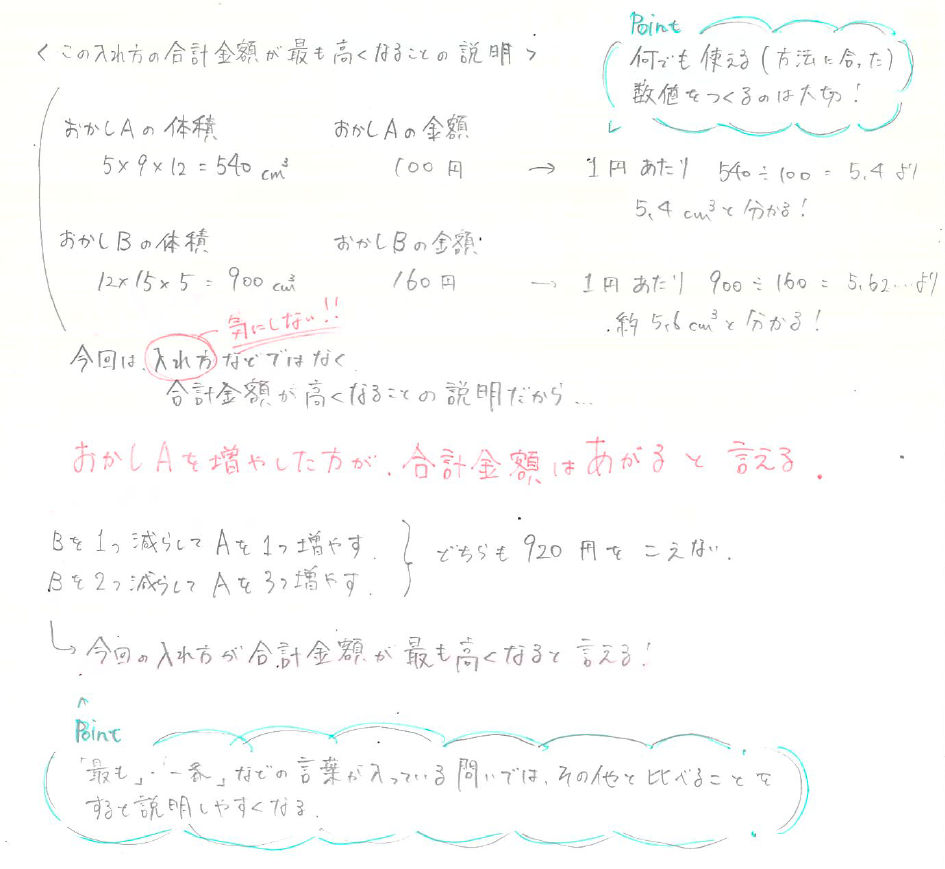 Point
何でも使える(方法に合った)
数値をつくるのは大切!
<この入れ方の合計金額が最も高くなることの説明>
おかしAの体積 おかしAの金額
5×9×12=540cm³ 100円 → 1円あたり 540÷100=5.4より
5.4cm³と分かる!
おかしBの体積 おかしBの金額
12×15×5=900cm³ 160円 → 1円あたり 900÷160=5.62…より
約5.6cm³と分かる!
気にしない!!
今回は、入れ方などではなく
合計金額が高くなることの説明だから…
おかしAを増やした方が、合計金額はあがると言える.
Bを1つ減らしてAを1つ増やす.
Bを2つ減らしてAを3つ増やす.
どちらも920円をこえない.
今回の入れ方が合計金額が最も高くなると言える!
Point
「最も」・「一番」などの言葉が入っている問いでは、その他と比べることを
すると説明しやすくなる.